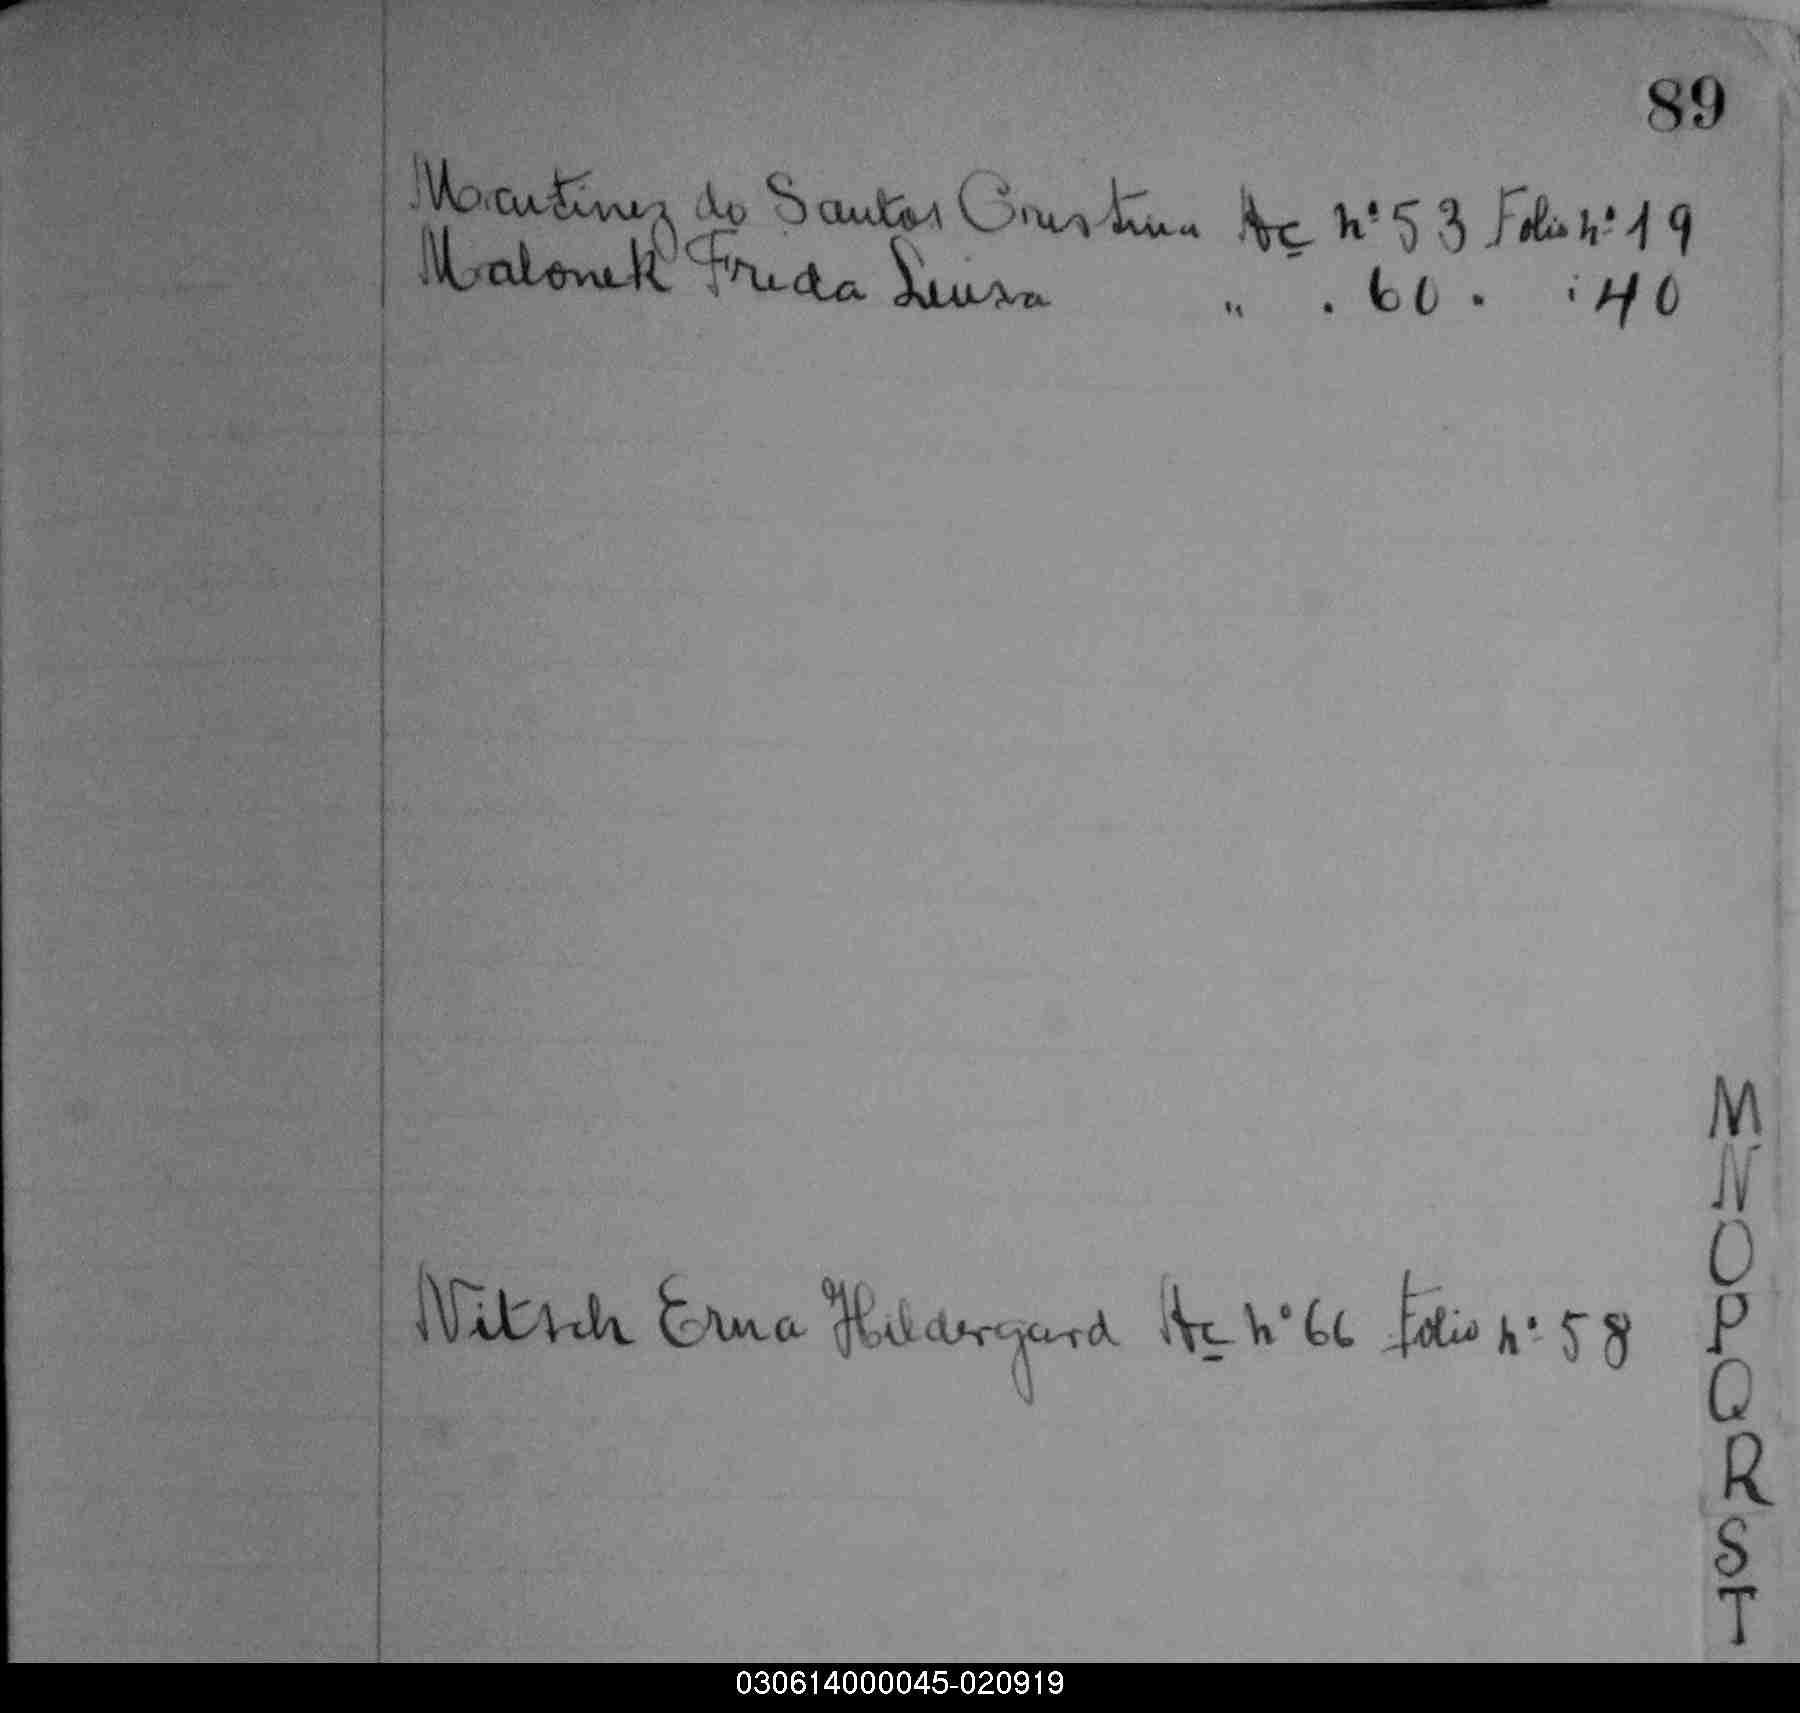 89
Martinez do Santos Cristina Ac nº 53 Folio nº 19
Malonek Frida Luisa " . 60 . : 40
Nitsch Erna Hildergard Ac nº 66 Folio nº 58
M
N
O
P
Q
R
S
T
030614000045-020919